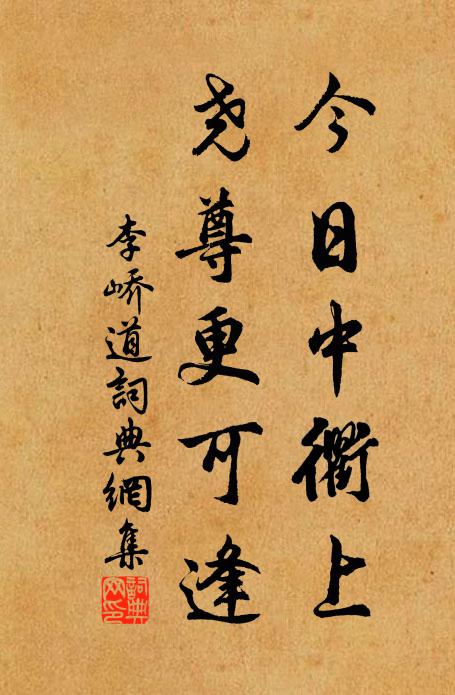 今日中衢上
尧尊更可逢
李峤道詞典網集
詞典网印